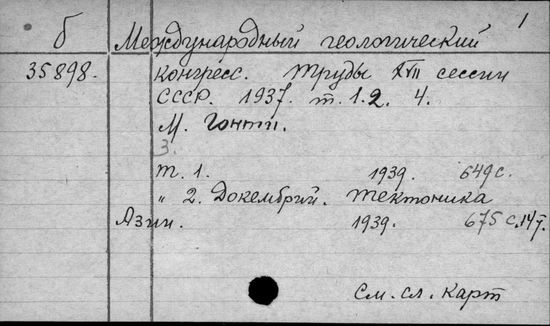 1
б Международный геологический
35898. Конгресс. Труды XVII сессии
СССР. 1937. т. 1. 2. 4.
М. Гонти.
3.
т. 1. 1939. 649 с.
" 2. Докембрий. Тектоника
Азии. 1939. 675 с.
См. сл. карт